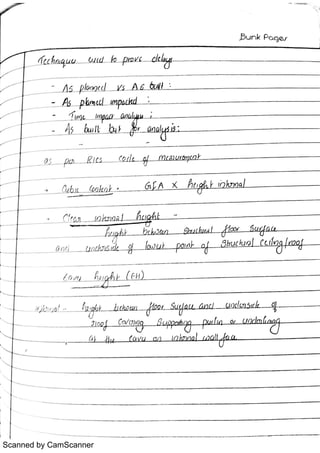 Bunk Pages
Technique used to prove delay
- As planned v's As built :
- As planned impacted :
- Time impact analysis :
- As built but for analysis :
as per Rics code of measurement
Cubic Content - GIA x height internal
Clean internal height -
height between structural floor surface
and underside of lowest point of structural ceiling/roof
Eaves height (EH)
Internal - height between floor surface and underside of
roof covering supporting purlin or underlining
at the eaves on internal wall face.
Scanned by CamScanner